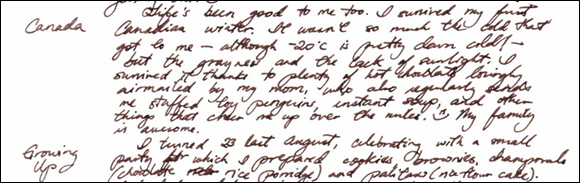 Life's been good to me too. I survived my first
Canada Canadian winter. It wasn't so much the cold that
got to me – although -20°C is pretty damn cold! –
but the grayness and the lack of sunlight. I
survived it thanks to plenty of hot chocolate lovingly
airmailed by my mom, who also regularly sends
me stuffed toy penguins, instant soup, and other
things that cheer me up over the miles. ^^ My family
is awesome.
Growing Up I turned 23 last August, celebrating with a small
party for which I prepared cookies, brownies, champorado
(chocolate rice porridge) and palitaw (rice flour cake).